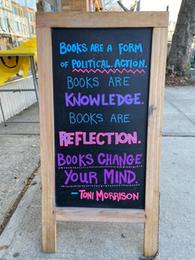 BOOKS ARE A FORM
OF POLITICAL ACTION.
BOOKS ARE
KNOWLEDGE.
BOOKS ARE
REFLECTION.
BOOKS CHANGE
YOUR MIND.
-TONI MORRISON